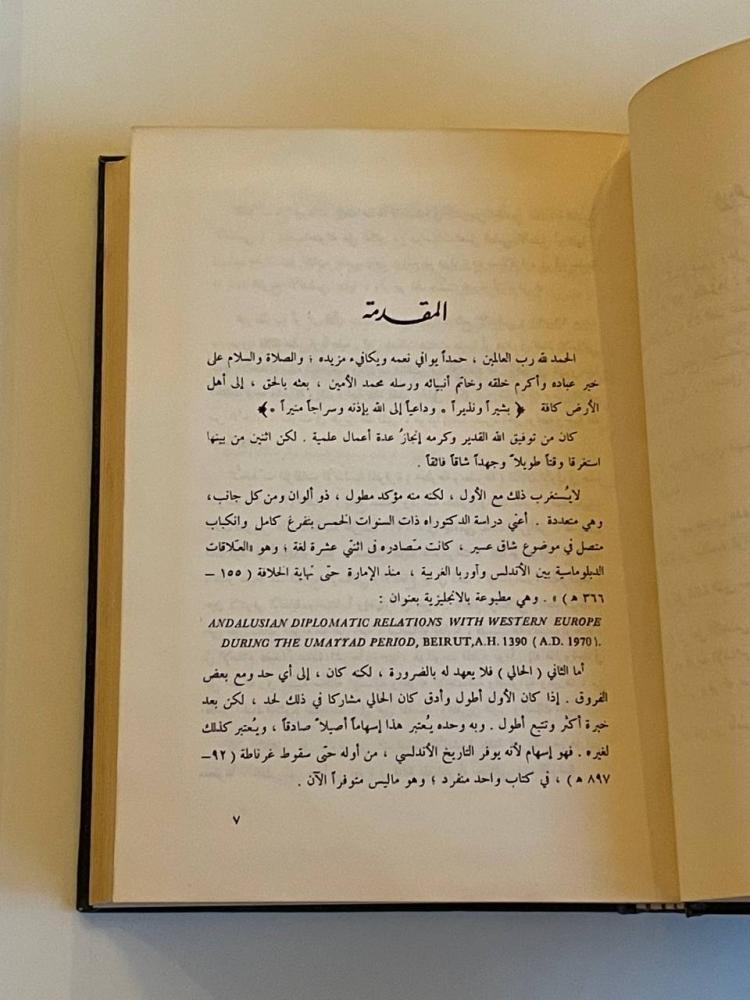 المقدمة
الحمد لله رب العالمين ، حمداً يوافي نعمه ويكافيء مزيده ؛ والصلاة والسلام على
خير عباده وأكرم خلقه وخاتم أنبيائه ورسله محمد الأمين ، بعثه بالحق ، إلى أهل
الأرض كافة ﴿ بشيراً ونذيراً * وداعياً إلى الله بإذنه وسراجاً منيراً * ﴾
كان من توفيق الله القدير وكرمه إنجازُ عدة أعمال علمية . لكن اثنين من بينها
استغرقا وقتاً طويلاً وجهداً شاقاً فائقاً .
لايُستغرب ذلك مع الأول ، لكنه منه مؤكد مطول ، ذو ألوان ومن كل جانب،
وهي متعددة . أعني دراسة الدكتوراه ذات السنوات الخمس بتفرغ كامل وانكباب
متصل في موضوع شاق عسير ، كانت مصادره في اثنتي عشرة لغة ؛ وهو «العلاقات
الدبلوماسية بين الأندلس وأوربا الغربية ، منذ الإمارة حتى نهاية الخلافة ( ١٥٥ –
٣٦٦ ه ) » . وهي مطبوعة بالانجليزية بعنوان :
ANDALUSIAN DIPLOMATIC RELATIONS WITH WESTERN EUROPE
DURING THE UMAYYAD PERIOD, BEIRUT,A.H. 1390 ( A.D. 1970 ).
أما الثاني ( الحالي ) فلا يعهد له بالضرورة ، لكنه كان ، إلى أي حد ومع بعض
الفروق . إذا كان الأول أطول وأدق كان الحالي مشاركا في ذلك لحد ، لكن بعد
خبرة أكثر وتتبع أطول . وبه وحده يُعتبر هذا إسهاماً أصيلاً صادقاً ، ويُعتبر كذلك
لغيره . فهو إسهام لأنه يوفر التاريخ الأندلسي ، من أوله حتى سقوط غرناطة ( ٩٢–
٨٩٧ ه ) ، في كتاب واحد منفرد ؛ وهو ماليس متوفراً الآن .
٧